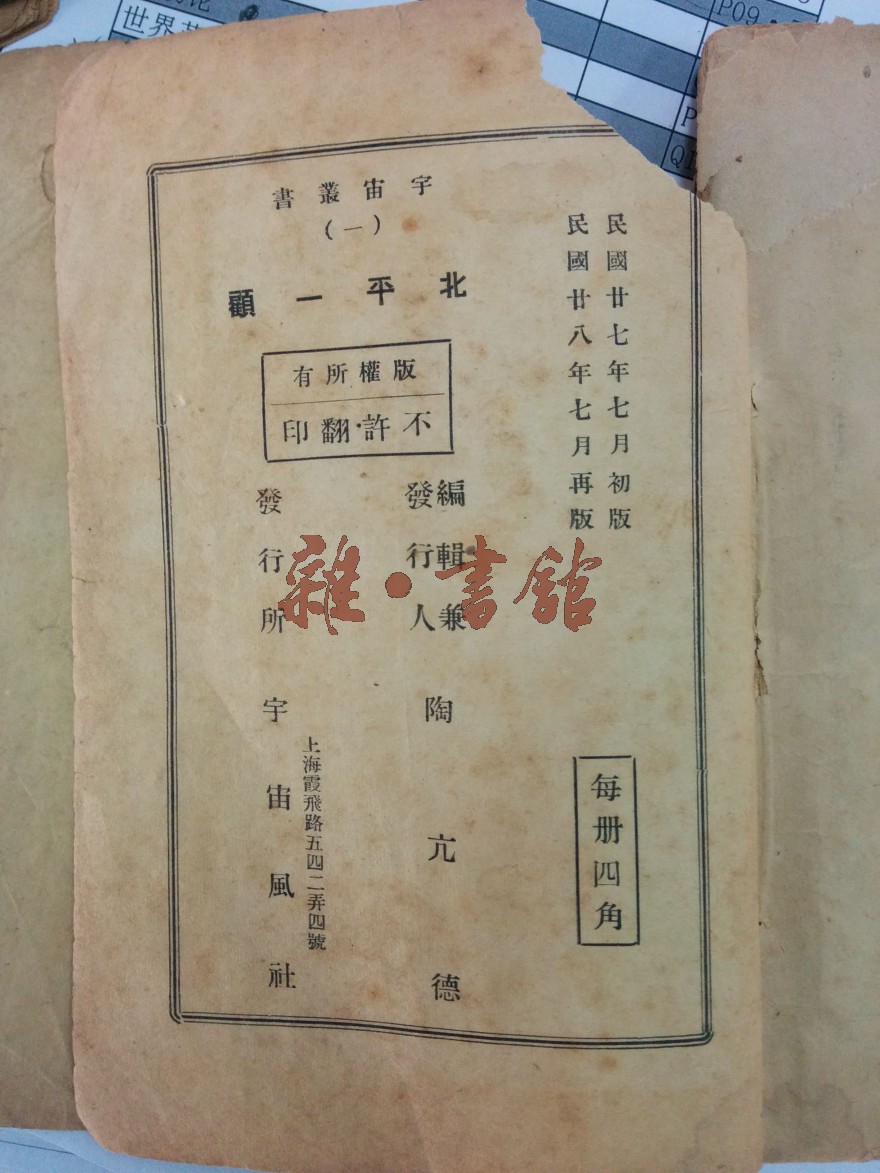 世界
P09
P
民國廿七年七月初版
民國廿八年七月再版
每册四角
宇宙叢書
(一)
北平一顧
版權所有
不許·翻印
編輯兼
發行人
陶亢德
發行所
宇宙風社
上海霞飛路五四二弄四號
雜·書館